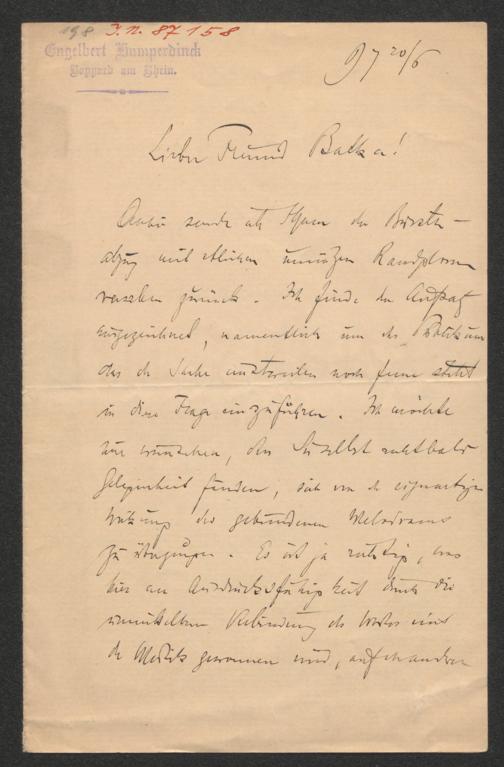 198 J.N. 87158
Engelbert Humperdinck
Boppard am Rhein.
97 20/6
Lieber Freund Batka!
Anbei sende ich Ihnen den Bürsten-
abzug mit etlichen unnützen Randglossen
versehen zurück. Ich finde den Aufsatz
ausgezeichnet, namentlich um das Publikum
das der Sache mitunter noch ferne steht
in diese Frage einzuführen. Ich möchte
nur wünschen, dass Sie selbst recht bald
Gelegenheit fänden, sich von der eigenartigen
Wirkung des gebundenen Melodrams
zu überzeugen. Es ist ja richtig, was
hier an Ausdrucksfähigkeit durch die
unmittelbare Verbindung des Wortes mit
der Musik gewonnen wird, auf der anderen